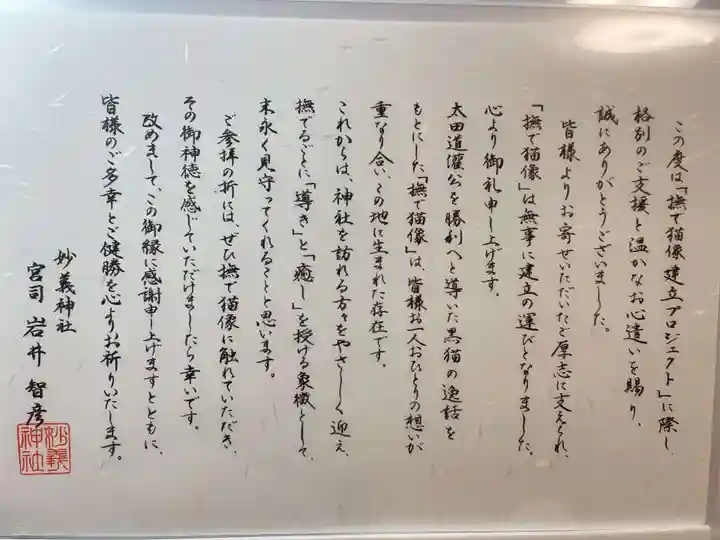 この度は「撫で猫像建立プロジェクト」に際し、
格別のご支援と温かなお心遣いを賜り、
誠にありがとうございました。
皆様よりお寄せいただいたご厚志に支えられ、
「撫で猫像」は無事に建立の運びとなりました。
心より御礼申し上げます。
太田道灌公を勝利へと導いた黒猫の逸話を
もとにした「撫で猫像」は、皆様お一人おひとりの想いが
重なり合い、この地に生まれた存在です。
これからは、神社を訪れる方々をやさしく迎え、
撫でるごとに「導き」と「癒し」を授ける象徴として、
末永く見守ってくれることと思います。
ご参拝の折には、ぜひ撫で猫像に触れていただき、
その御神徳を感じていただけましたら幸いです。
改めまして、この御縁に感謝申し上げますとともに、
皆様のご多幸とご健勝を心よりお祈りいたします。
妙義神社
宮司 岩井 智彦
妙義神社